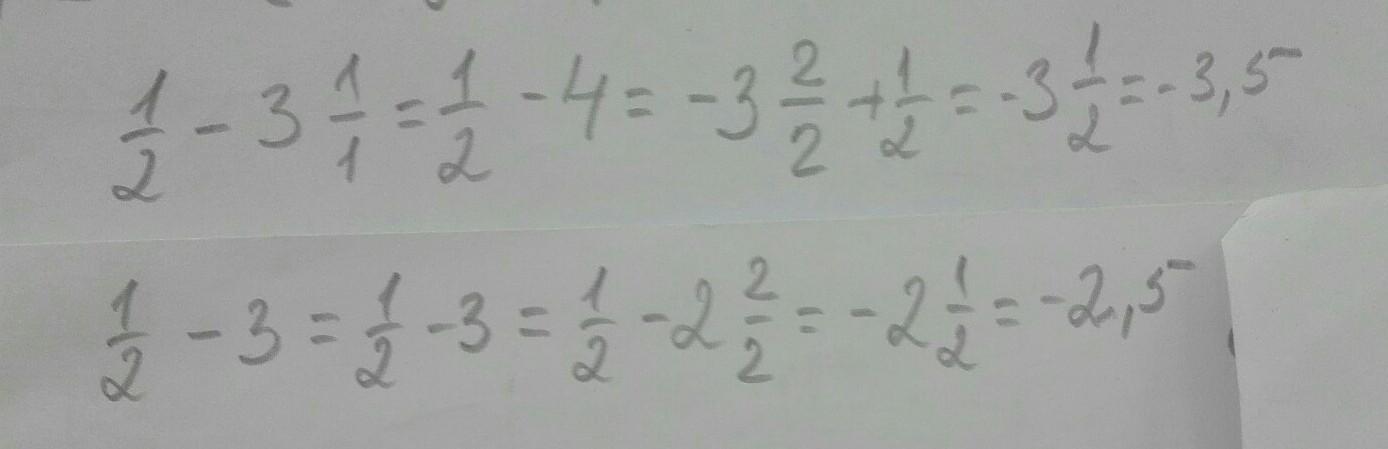 1/2 - 3 1/1 = 1/2 - 4 = -3 2/2 + 1/2 = -3 1/2 = -3,5
1/2 - 3 = 1/2 - 3 = 1/2 - 2 2/2 = -2 1/2 = -2,5